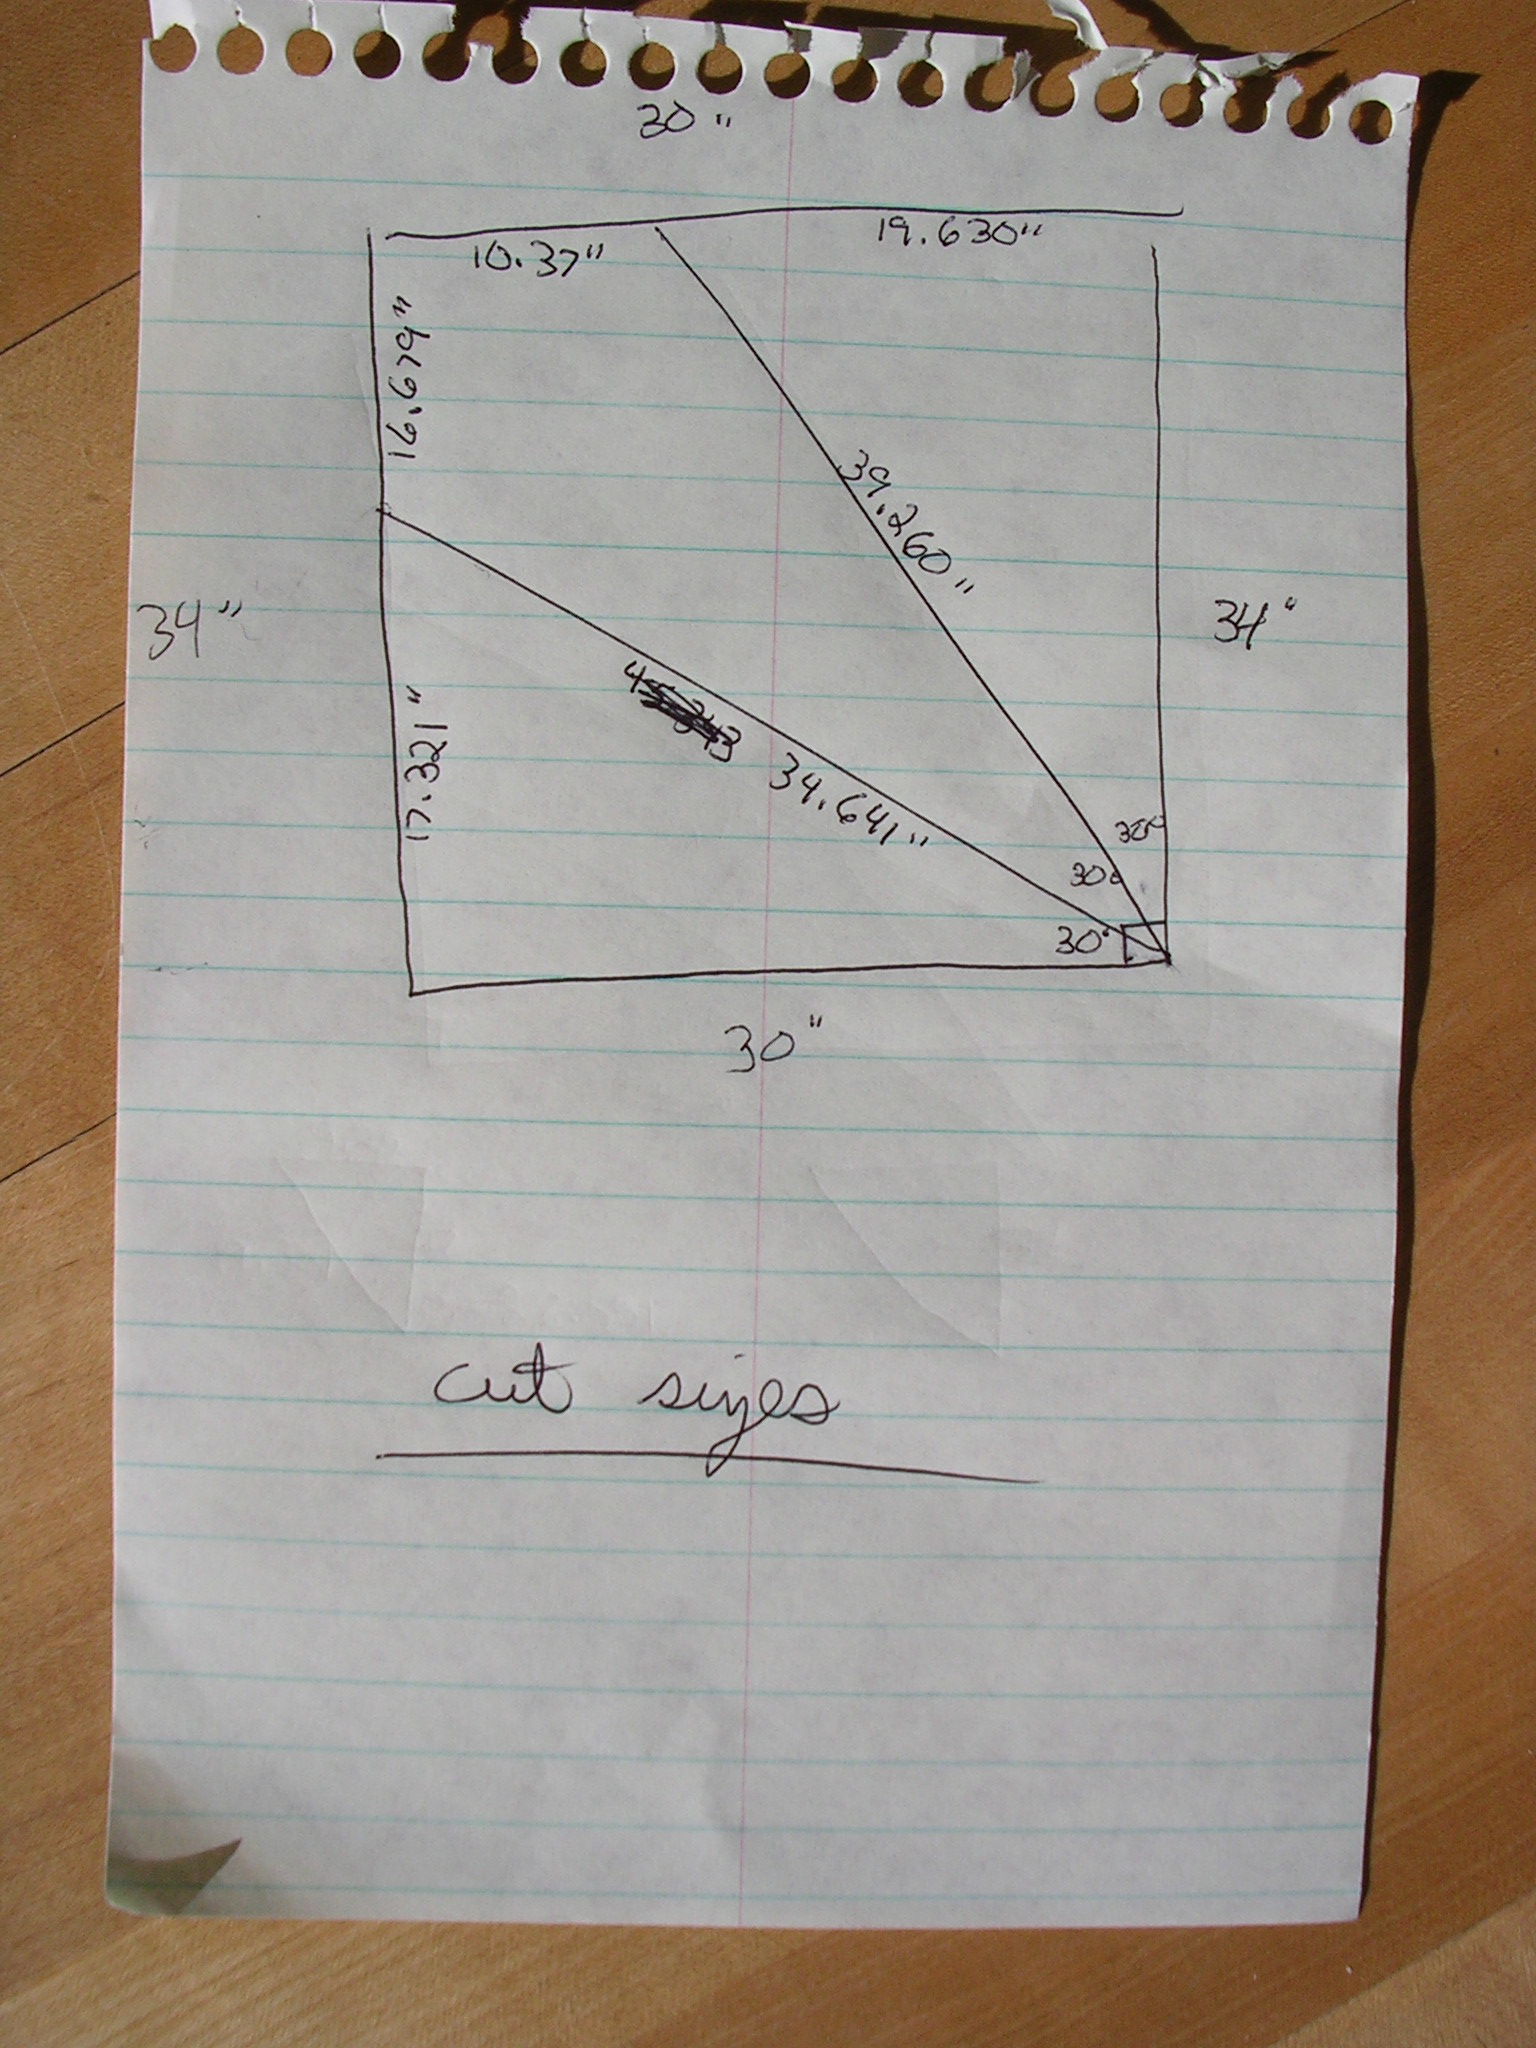 30"
10.37" 19.630"
16.679"
39.260"
34" 34"
17.321"
34.641"
30°
30°
30°
30"
cut sizes